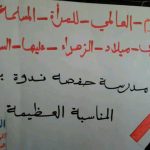 م - العالمي - للمرأة - المسلمة
ميلاد - الزهراء - عليها - الس
مدرسة حفصه ندوة ب
المناسبة العظيمة